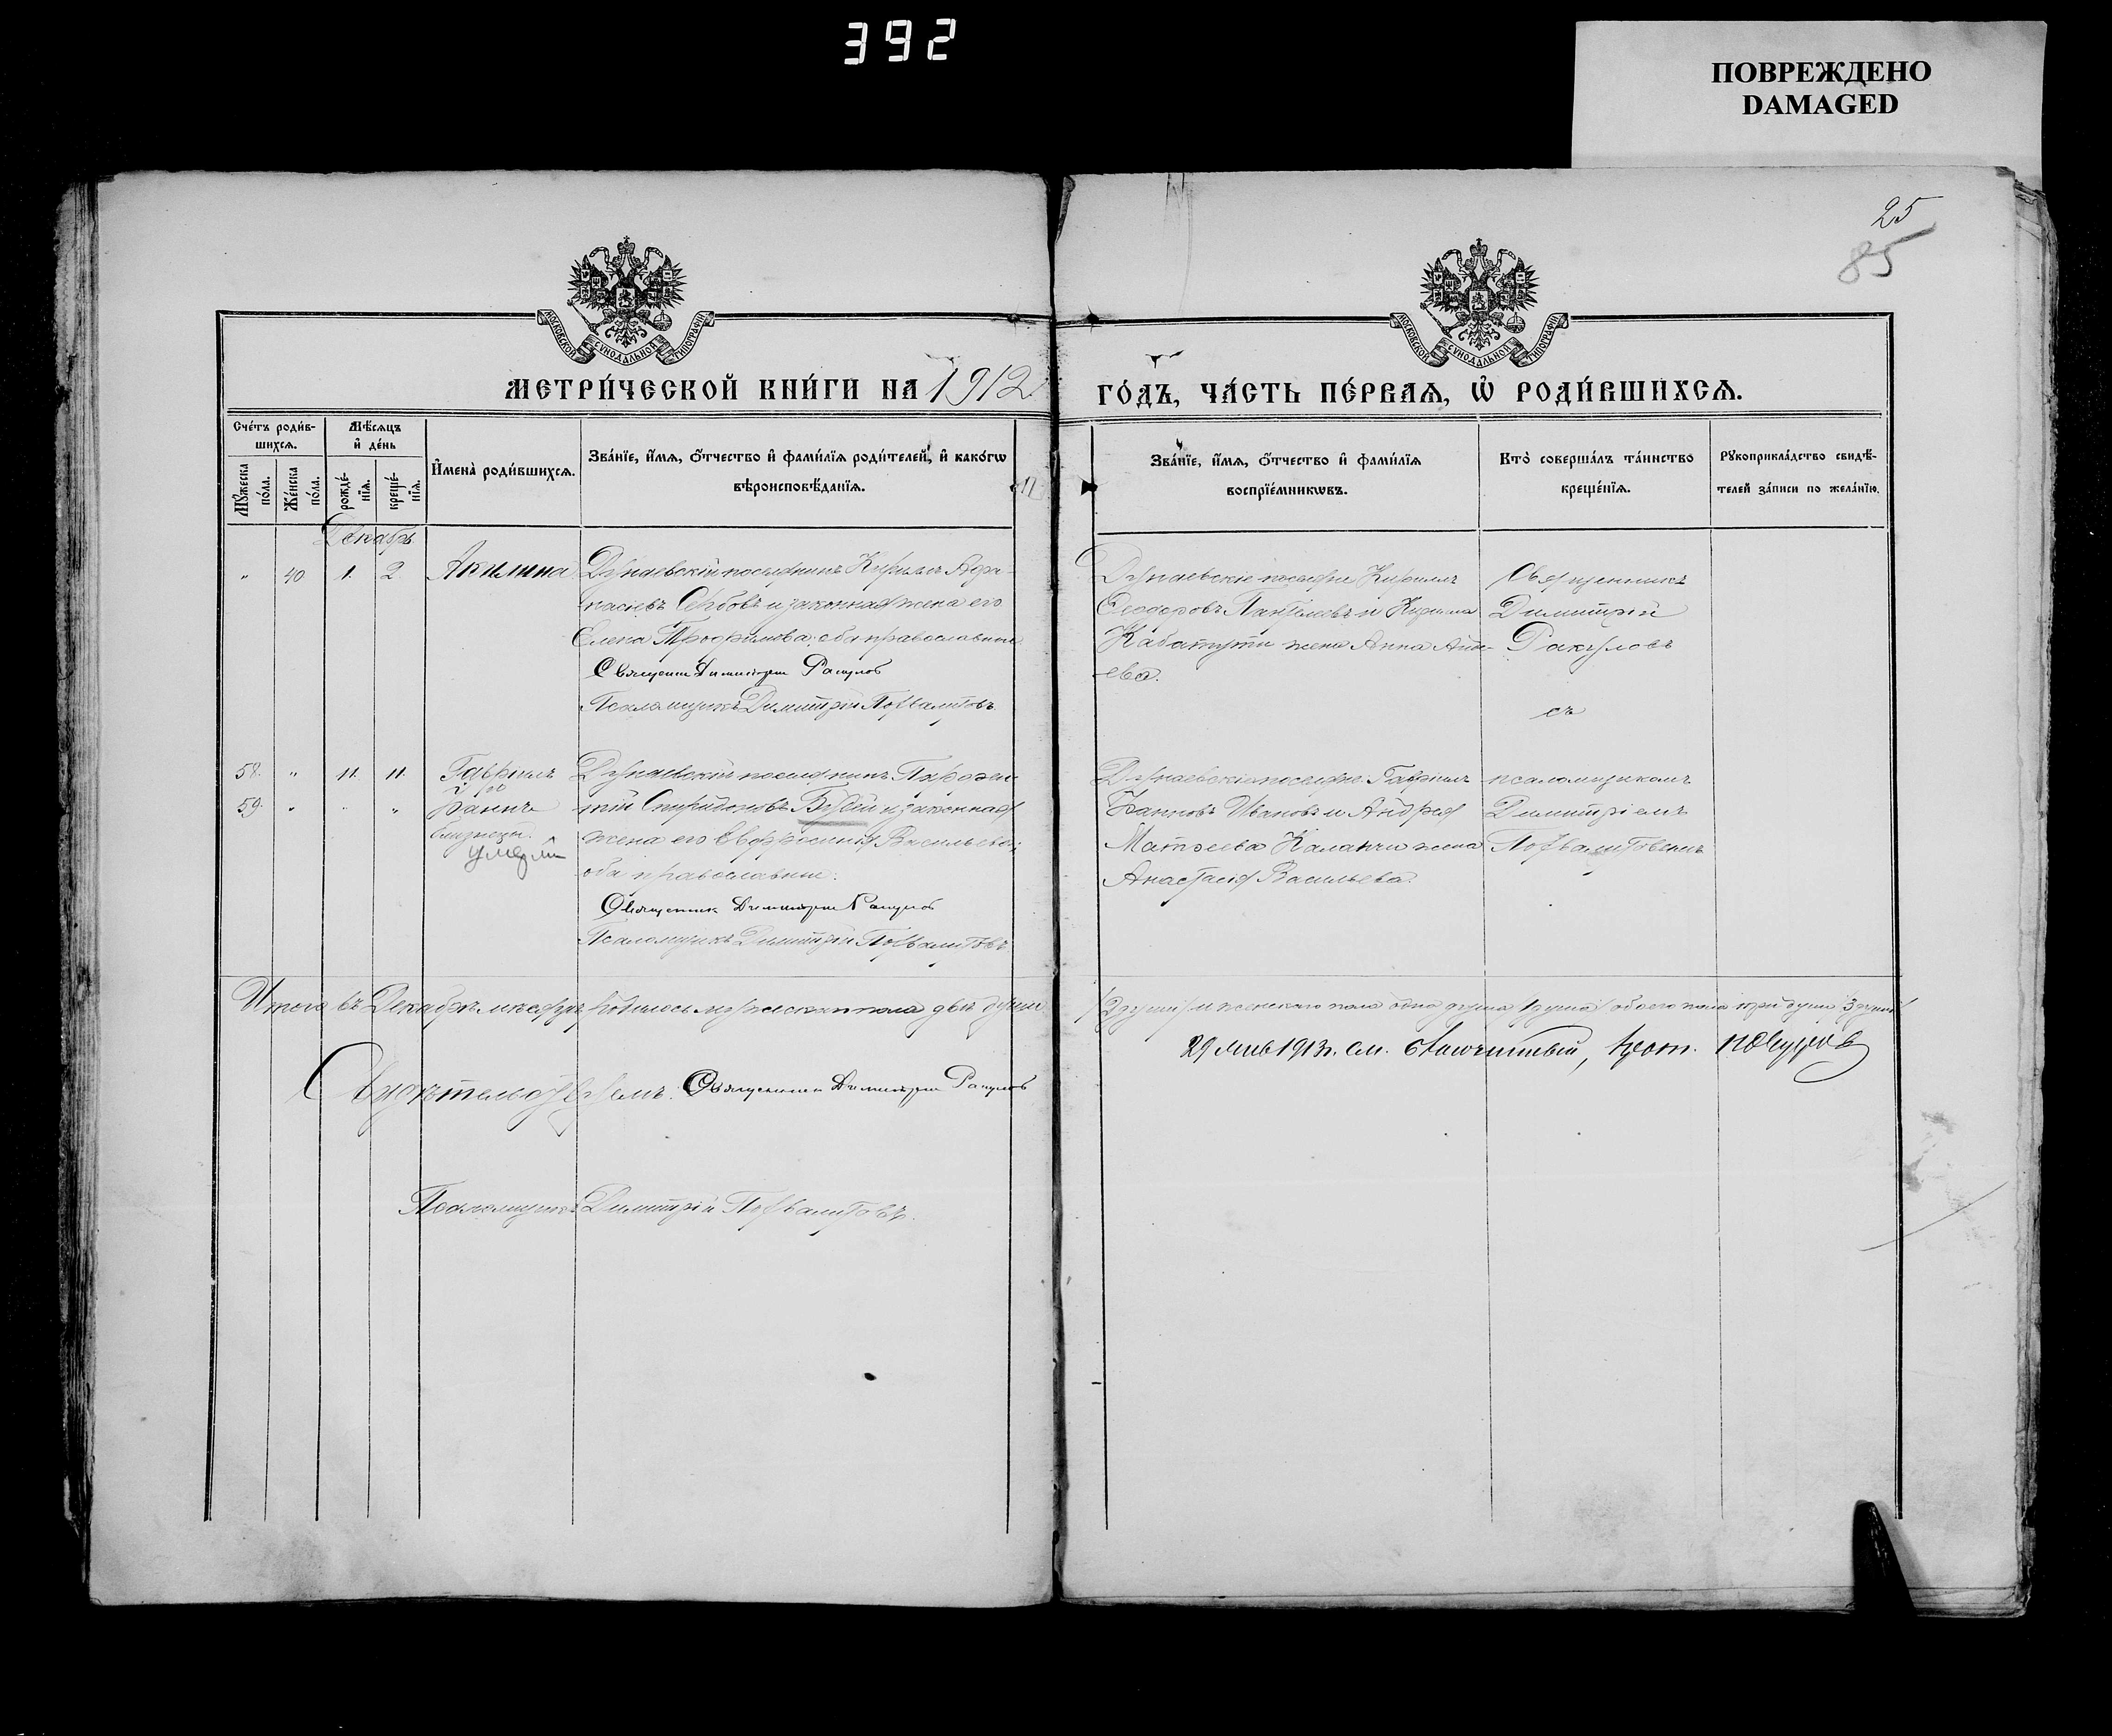 392
ПОВРЕЖДЕНО
DAMAGED
25
85
МОСКОВСКОЙ СУНОДАЛЬНОЙ ТИПОГРАФІИ
МОСКОВСКОЙ СУНОДАЛЬНОЙ ТИПОГРАФІИ
МЕТРИ́ЧЕСКОЙ КНИ́ГИ НА 1912
ГО́ДЪ, ЧА́СТЬ ПЕ́РВАѦ, Ѡ РОДИ́ВШИХСѦ.
Сче́тъ роди́в-
шихсѧ.
Мꙋжеска
по́ла.
Же́нска
по́ла.
Мѣ́сѧцъ
и҆ де́нь
рожде́-
нїѧ.
креще́-
нїѧ.
И҆мена̀ роди́вшихсѧ.
Зва́нїе, и҆́мѧ, ѻ҆́тчество и҆ фами́лїѧ роди́телей, и҆ како́гѡ
вѣроисповѣ́данїѧ.
Зва́нїе, и҆́мѧ, ѻ҆́тчество и҆ фами́лїѧ
воспрїе́мникѡвъ.
Кто̀ соверша́лъ та́инство
креще́нїѧ.
Рꙋкоприкла́дство свидѣ́-
телей за́писи по жела́нїю.
Декабрь
" 40 1. 2 Акилина
Дунаевскій поселянинъ Кириллъ Афа-
насіевъ и законная жена его
Елена Трофимова, оба православные
Священник Димитрий Ракулов
Псаломщикъ Димитрій Похвалитовъ
Дунаевскіе поселяне Кириллъ
Феодоровъ Пантелеевъ и
жена Анна
ева.
Священникъ
Димитрій
Ракуловъ
съ
58. " 11. 11. Гавріилъ
и
59. " " " Іоаннъ
близнецы.
умерли
Дунаевскій поселянинъ Парфен-
тій Спиридоновъ и законная
жена его Евфросинія Васильева,
оба православные.
Священник Димитрий Ракулов
Псаломщикъ Димитрій Похвалитовъ
Дунаевскіе поселяне Гавріилъ
Іоанновъ Ивановъ и Андрея
Матѳеева жена
Анастасія Васильева.
псаломщикомъ
Димитріемъ
Похвалитовымъ
Итого въ Декабрѣ мѣсяцѣ родилось мужескаго пола двѣ души
/2 души/ и женскаго пола одна душа /1 душа/ обоего пола три души /3 души/
29 1913 г. см. прот.
Свидѣтельствуемъ: Священник Димитрий Ракулов
Псаломщикъ Димитрій Похвалитовъ.